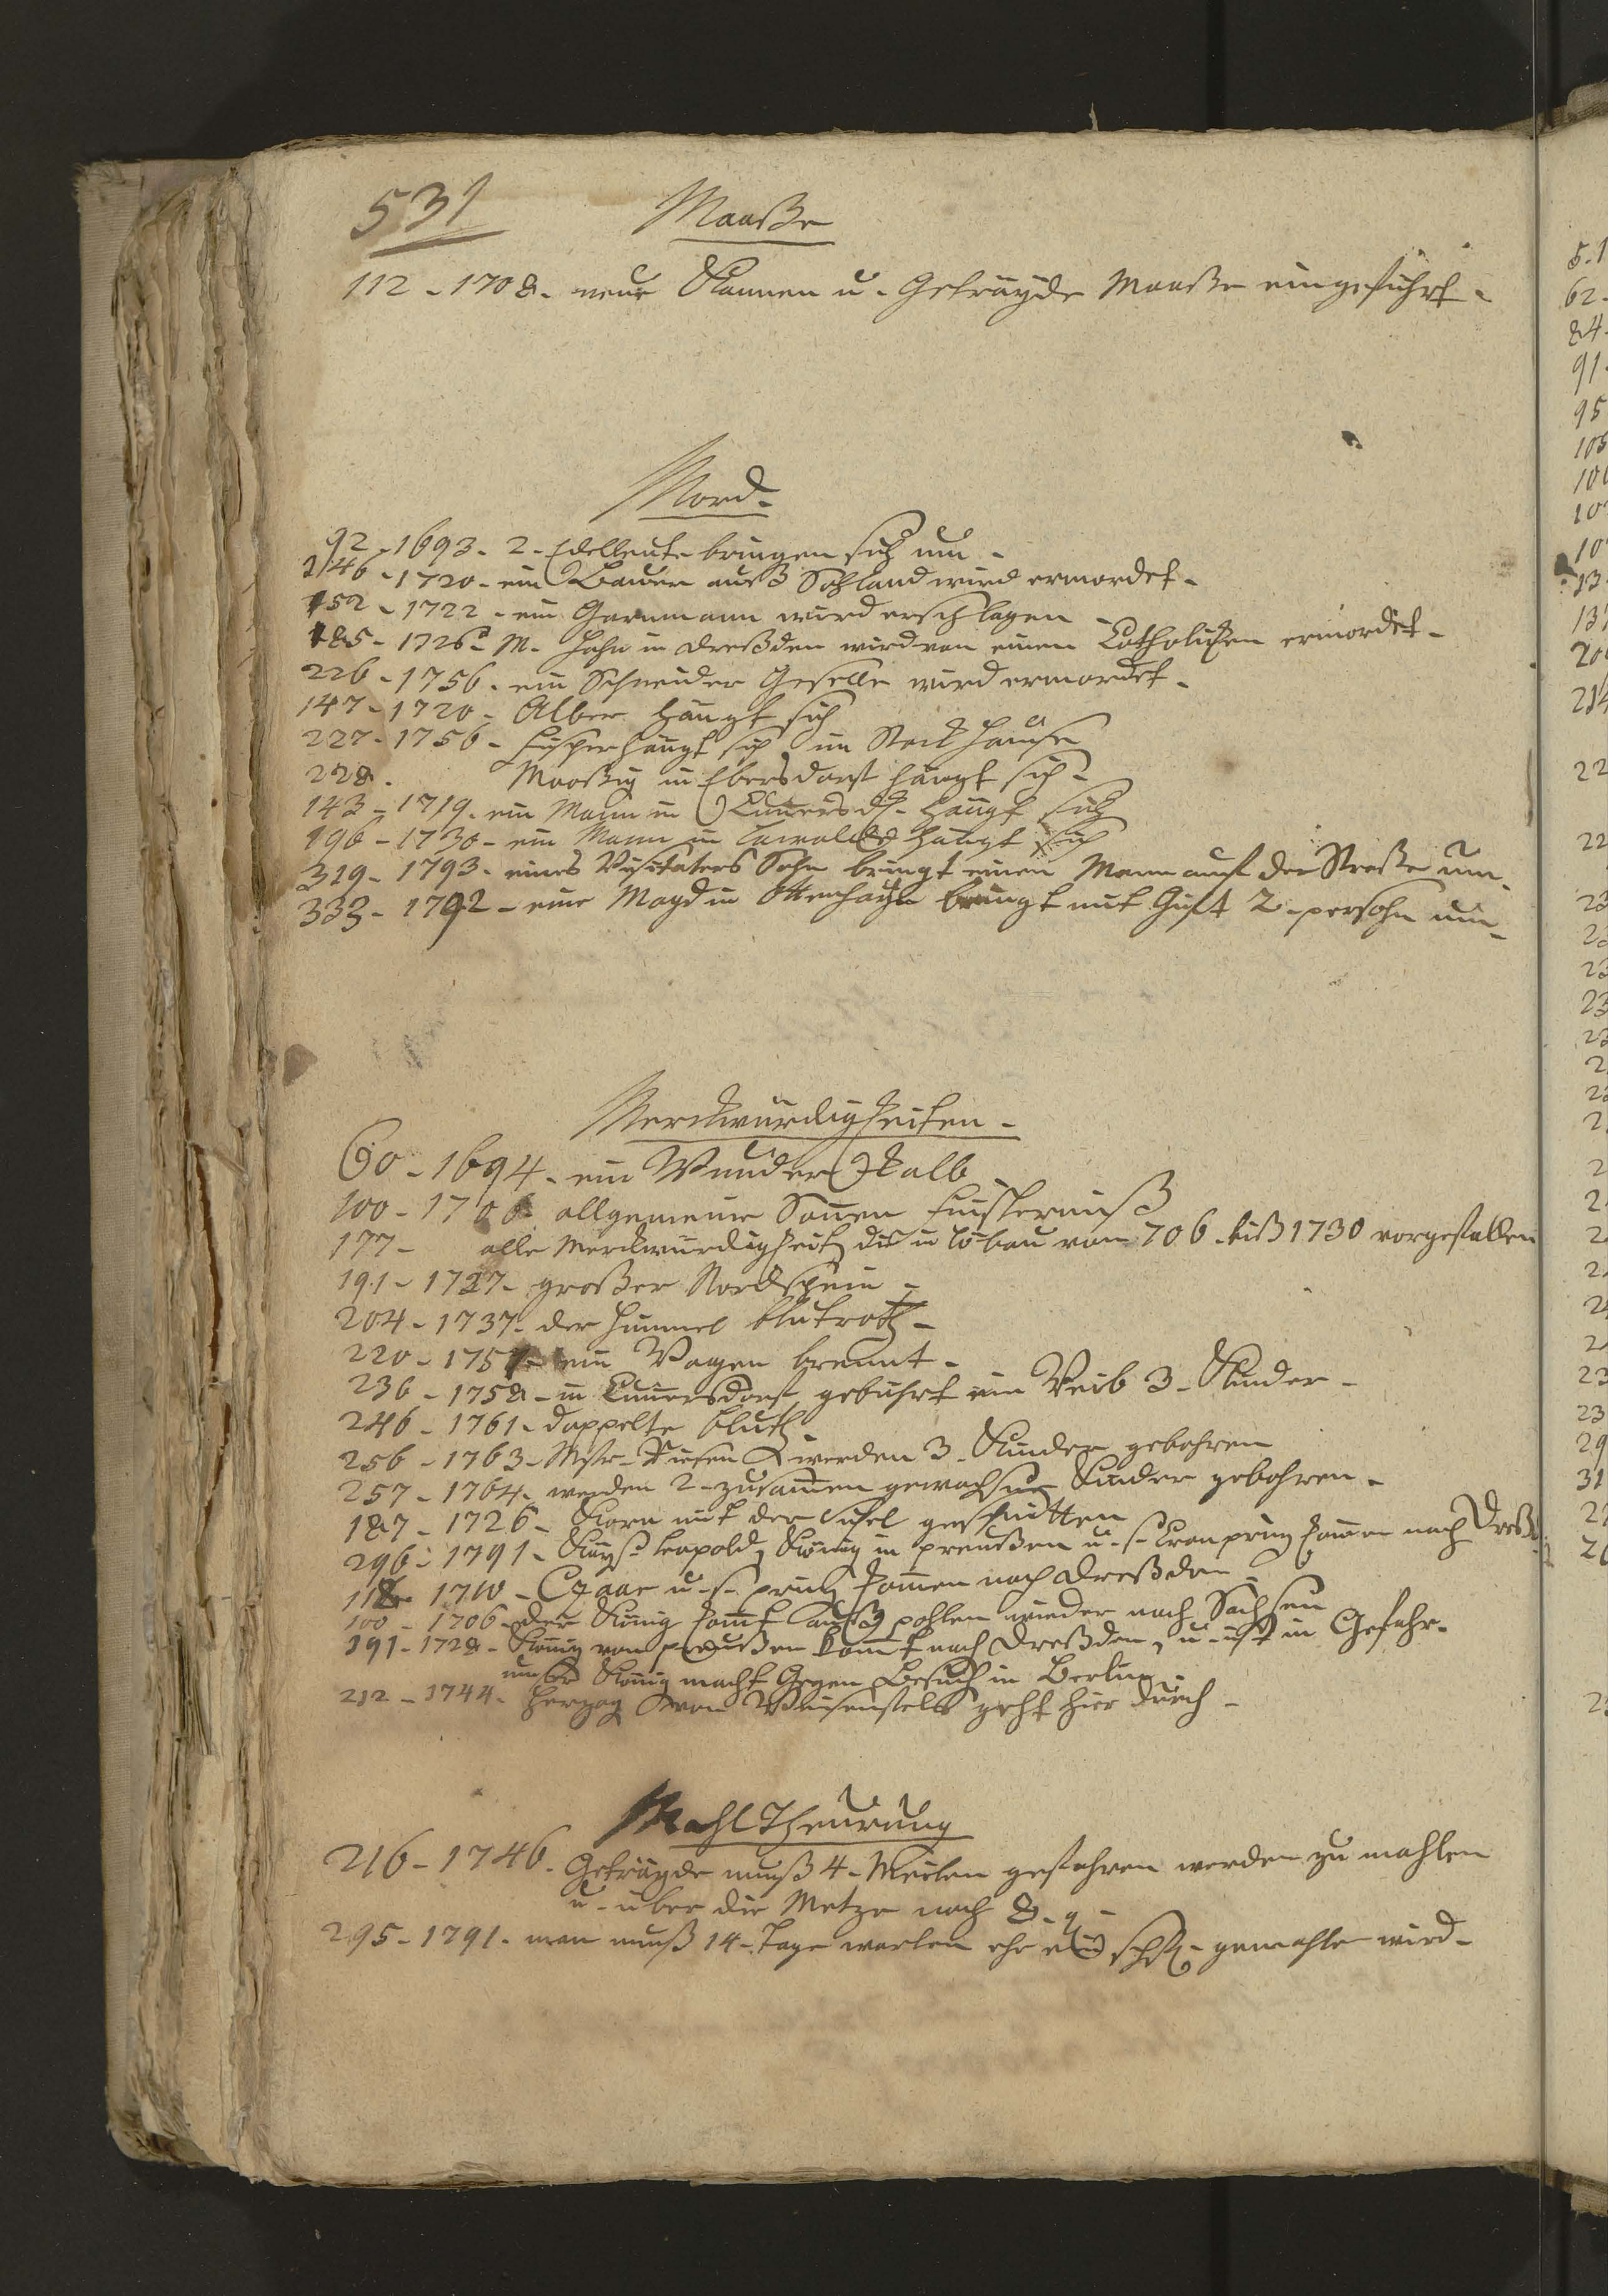 531
Maaße
112 - 1708. neue Kannen u. Geträyde Maaße eingeführt.
Mord.
92 - 1693. 2. Edelleute bringen sich um.
146 - 1720. ein Bauer auß Sohland wird ermordet.
152 - 1722 - ein Garnmann wird erschlagen
185 - 1726. M. Hahn in Dreßden wird von einem Catholicken ermordet.
226 - 1756. ein Schneider Geselle wird ermordet.
147 - 1720. Alber hängt sich
227 - 1756 - hängt sich im Stockhause
228. in Ebersdorf hängt sich.
143 - 1719. ein Mann in Cunersd. hängt sich
196 - 1730 - ein Mann in Lawalde hängt sich
319 - 1793. eines Visitators Sohn bringt einen Mann auf der Straße um.
333 - 1792 - eine Magd in Ottenhayn bringt mit Gift 2. persohn um.
Merckwürdigkeiten.
60 - 1694. ein Wunder Kalb.
100 - 1706 allgemeine Sonnen Finsterniß
177 - alle Merckwürdigkeit die in Löbau von 706 biß 1730 vorgefallen
191 - 1727. großer Nordschein.
204 - 1737. der Himmel blutroth.
220 - 1751 ein Wagen brennt.
236 - 1758 - in Cunnersdorf gebührt ein Weib 3. Kinder.
246 - 1761. doppelte bluth.
256 - 1763. Mstr. werden 3. Kinder gebohren
257 - 1764. werden 2. zusammen gewachsne Kinder gebohren.
187 - 1726. Korn mit der Sichel geschnitten
296 - 1791. Kayß. Leopold, König in preußen u. s. Cronprinz kommen nach Dreßd.
118 1710 - Czaar u. s. prinz kommen nach Dreßden.
100 - 1706 der König kommt auß pohlen wieder nach Sachsen
191 - 1728. König von preußen kommt nach Dreßden, u. ist in Gefahr.
unser König macht Gegen Besuch in Berlin.
212 - 1744. Herzog von Weisenfels geht hier durch.
Mahl Theurung
216 - 1746. Geträyde muß 4. Meilen gefahren werden zu mahlen
u. über die Metze noch 8. g.
295 - 1791. man muß 14. Tage warten ehe ein schfl. gemahlen wird.